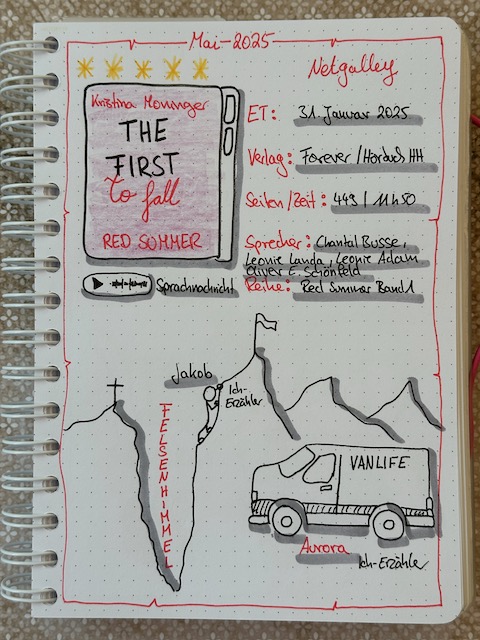 Mai-2025
Netgalley
Kristina Moninger
THE
FIRST
to fall
RED SUMMER
ET: 31. Januar 2025
Verlag: Forever / Hörbuch HH
Seiten/Zeit: 443 | 11h50
Sprecher: Chantal Busse,
Leonie Landa, Leonie Adam
Oliver E. Schönfeld
Sprachnachricht
Reihe: Red Summer Band 1
Jakob
Ich-
Erzähler
FELSENHIMMEL
VANLIFE
Aurora
Ich-Erzähler